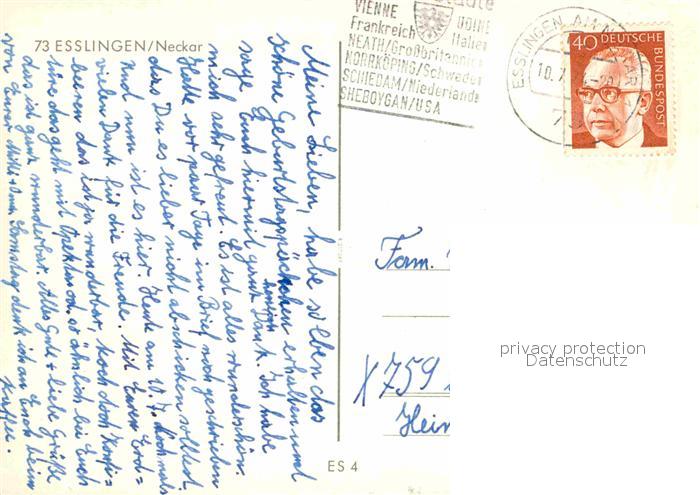 73 ESSLINGEN/Neckar
Meine Lieben, habe soeben das
schöne Geburtstagspäckchen erhalten und
sage Euch hiermit ganz herzlich Dank. Ich habe
mich sehr gefreut. Es ist alles wunderschön.
Hatte vor paar Tage im Brief noch geschrieben
dass Du es lieber nicht abschicken solltest.
Und nun ist es hier. Heute am 10.7. Nochmals
vielen Dank für die Freude. Mit Euren Erd=
beeren das ist ja wunderbar, koch doch Konfi=
türe das geht mit Opekta od. so ähnlich bei Euch
das ist ganz wunderbar. Alles Gute + liebe Grüße
von Eurer Samstag denk ich an Euch beim
Kaffee.
VIENNE
Frankreich
UDINE
Italien
NEATH/Großbritannien
NORRKÖPING/Schweden
SCHIEDAM/Niederlande
SHEBOYGAN/USA
ESSLINGEN AM
10.7
40 DEUTSCHE
BUNDESPOST
Fam.
759
Hein
ES 4
privacy protection
Datenschutz